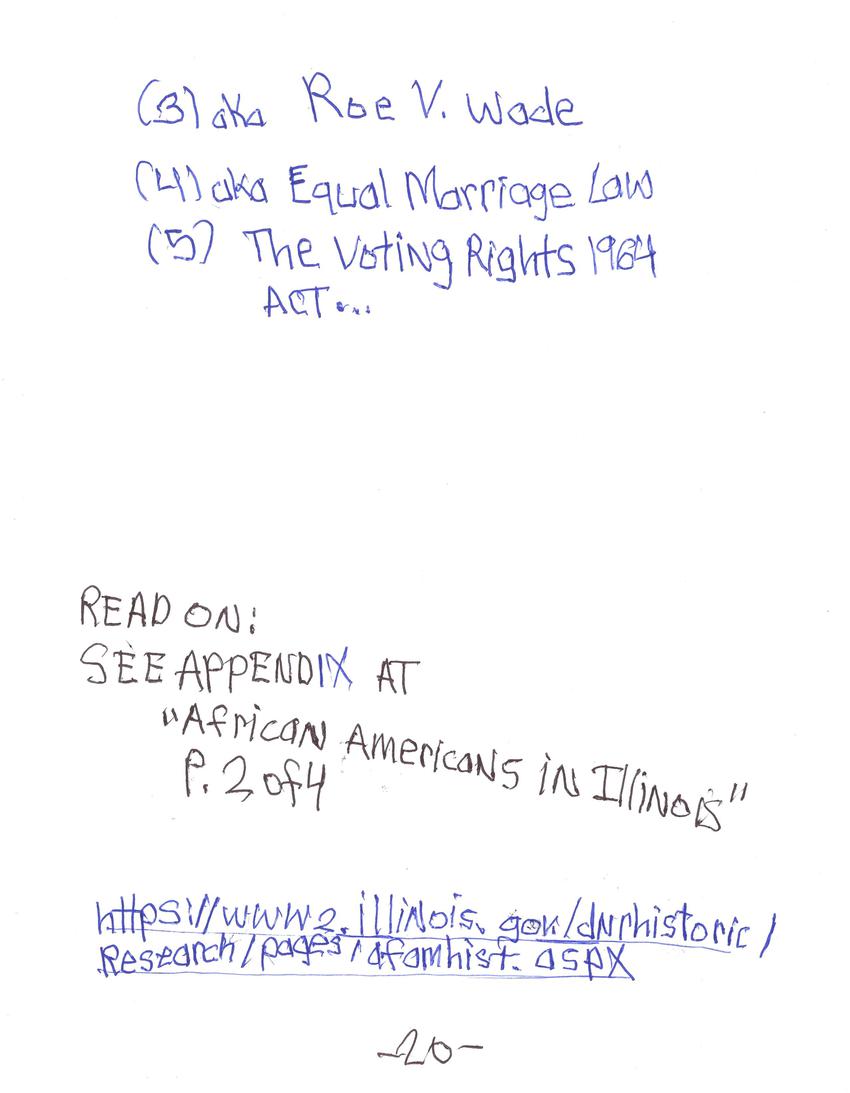 (3) aka Roe V. Wade
(4) aka Equal Marriage Law
(5) The Voting Rights 1964
ACT...
READ ON:
SEE APPENDIX AT
"African Americans in Illinois"
P. 2 of 4
https://www2.illinois.gov/dnrhistoric/
Research/pages/afamhist.aspx
-20-